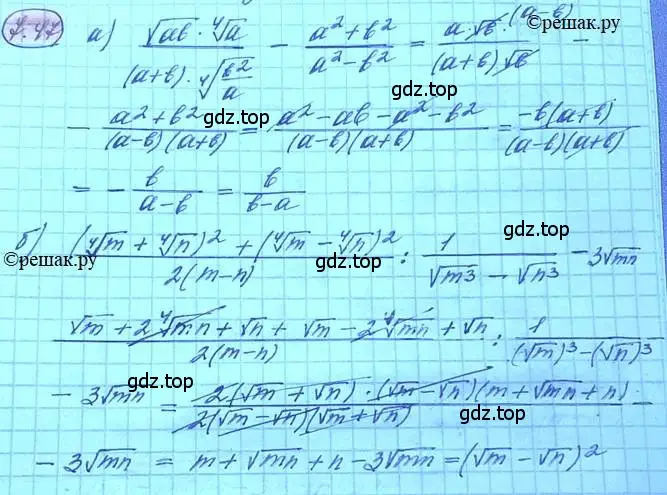 7.47 а) √ab · ⁴√a / (a+b) · ⁴√(b²/a) − (a²+b²)/(a²−b²) = a·√b·(a−b) / (a+b)√b −
©решак.ру
− (a²+b²)/((a−b)(a+b)) = (a²−ab−a²−b²)/((a−b)(a+b)) = −b(a+b)/((a−b)(a+b))
gdz.top gdz.top
= − b/(a−b) = b/(b−a)
б) ((⁴√m + ⁴√n)² + (⁴√m − ⁴√n)²)/(2(m−n)) : 1/(√m³ − √n³) − 3√mn
©решак.ру gdz.top gdz.top
(√m + 2⁴√mn + √n + √m − 2⁴√mn + √n)/(2(m−n)) : 1/((√m)³−(√n)³)
− 3√mn = 2(√m + √n)·(√m − √n)(m+√mn+n)/(2(√m − √n)(√m + √n)) −
gdz.top gdz.top
− 3√mn = m + √mn + n − 3√mn = (√m − √n)²
gdz.top